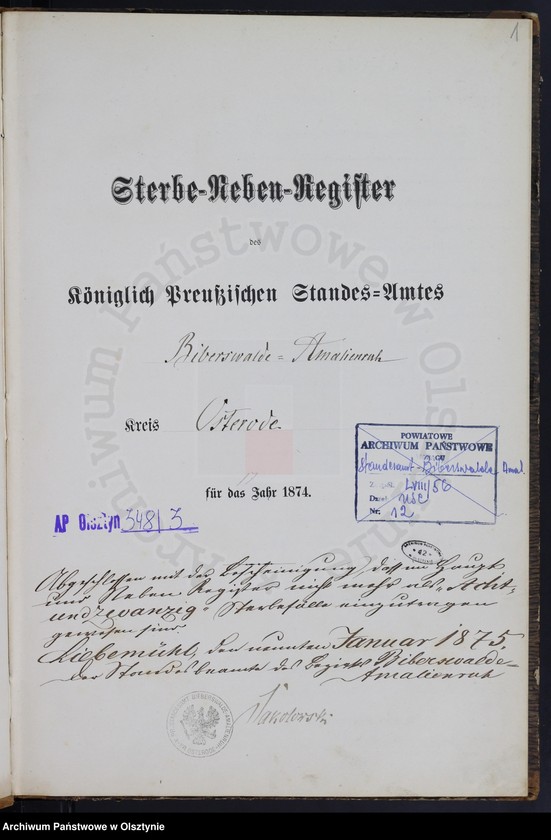 1
Sterbe-Neben-Register
des
Königlich Preußischen Standes-Amtes
Biberswalde = Amalienruh
Kreis Osterode
für das Jahr 1874.
POWIATOWE
ARCHIWUM PAŃSTWOWE
Standesamt-Biberswalde Amal.
LVIII/56
USC
Nr. 12
AP Olsztyn 348/3
Abgeschlossen mit der Bescheinigung, daß im Haupt
und Neben Register nicht mehr als "Acht-
und zwanzig" Sterbefälle einzutragen
gewesen sind.
Liebemühl, den neunten Januar 1875.
Der Standesbeamte des Bezirks Biberswalde-
Amalienruh
Archiwum Państwowe w Olsztynie